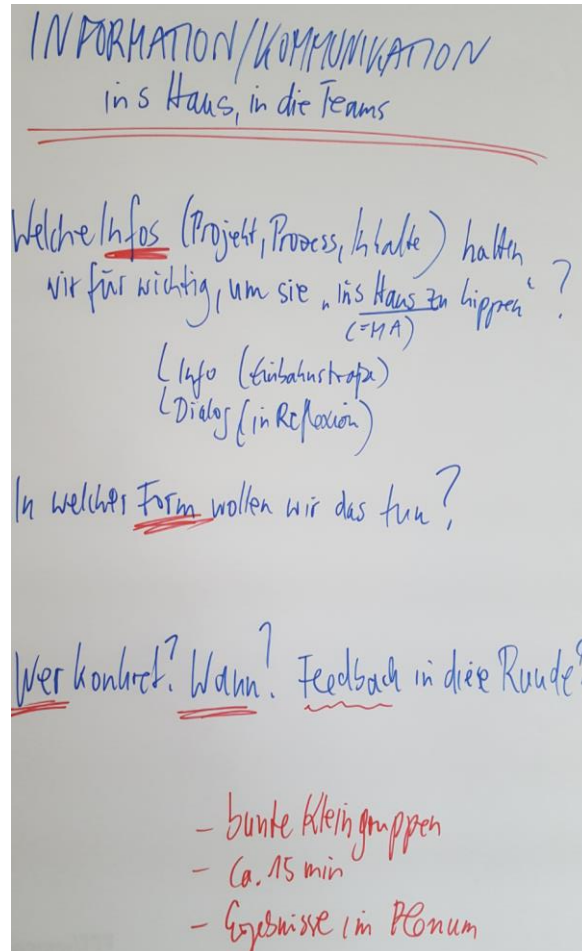 INFORMATION/KOMMUNIKATION
ins Haus, in die Teams
Welche Infos (Projekt, Prozess, Inhalte) halten
wir für wichtig, um sie „ins Haus zu kippen“?
(=MA)
Info (Einbahnstraße)
Dialog (in Reflexion)
In welcher Form wollen wir das tun?
Wer konkret? Wann? Feedback in diese Runde?
- bunte Kleingruppen
- ca. 15 min
- Ergebnisse im Plenum